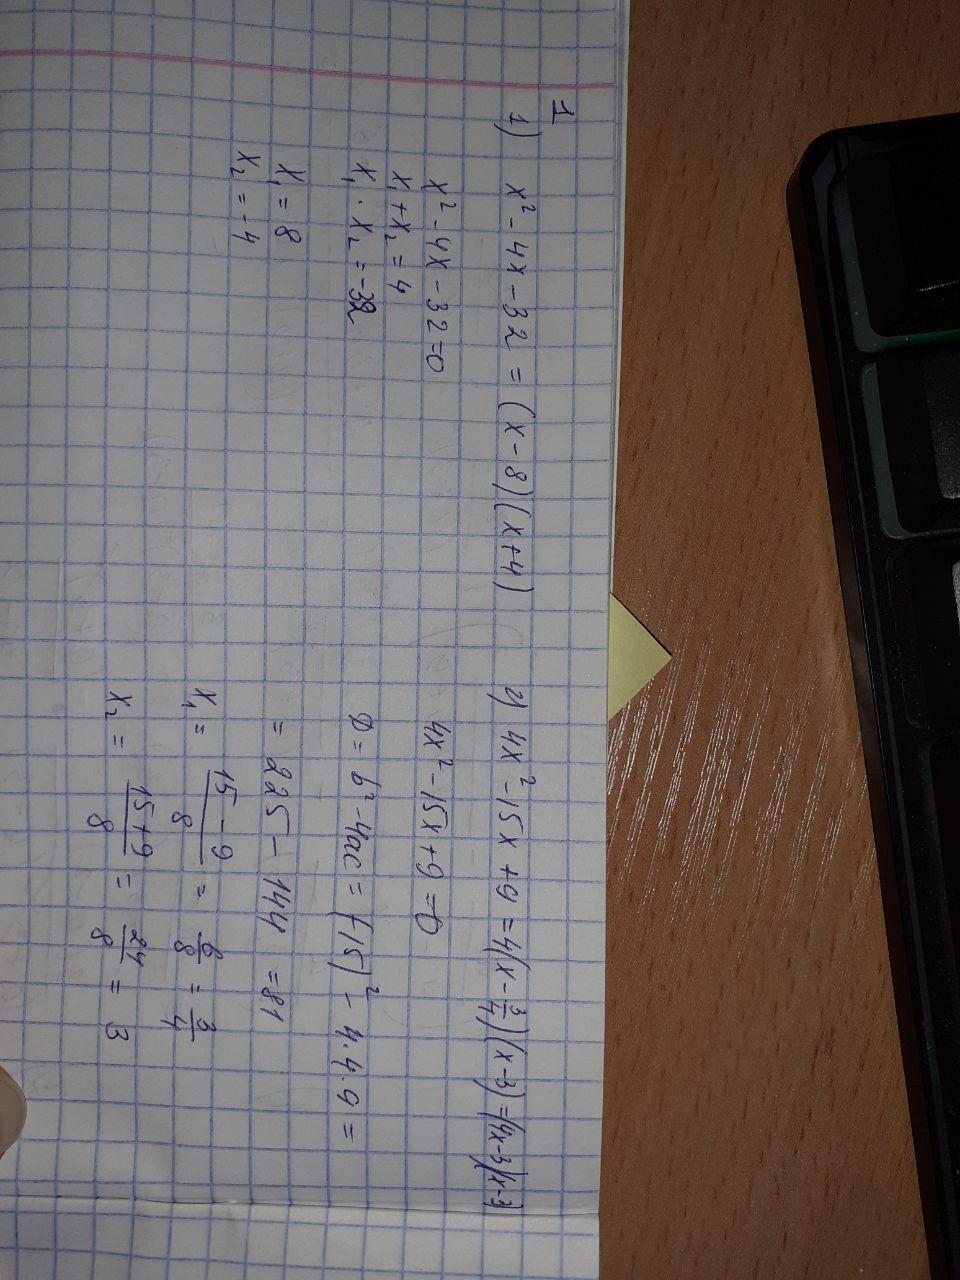 1
1) x² - 4x - 32 = (x - 8)(x + 4)
x² - 4x - 32 = 0
x₁ + x₂ = 4
x₁ · x₂ = -32
x₁ = 8
x₂ = -4
2) 4x² - 15x + 9 = 4(x - 3/4)(x - 3) = (4x - 3)(x - 3)
4x² - 15x + 9 = 0
D = b² - 4ac = (-15)² - 4·4·9 =
= 225 - 144 = 81
x₁ = (15 - 9)/8 = 6/8 = 3/4
x₂ = (15 + 9)/8 = 24/8 = 3